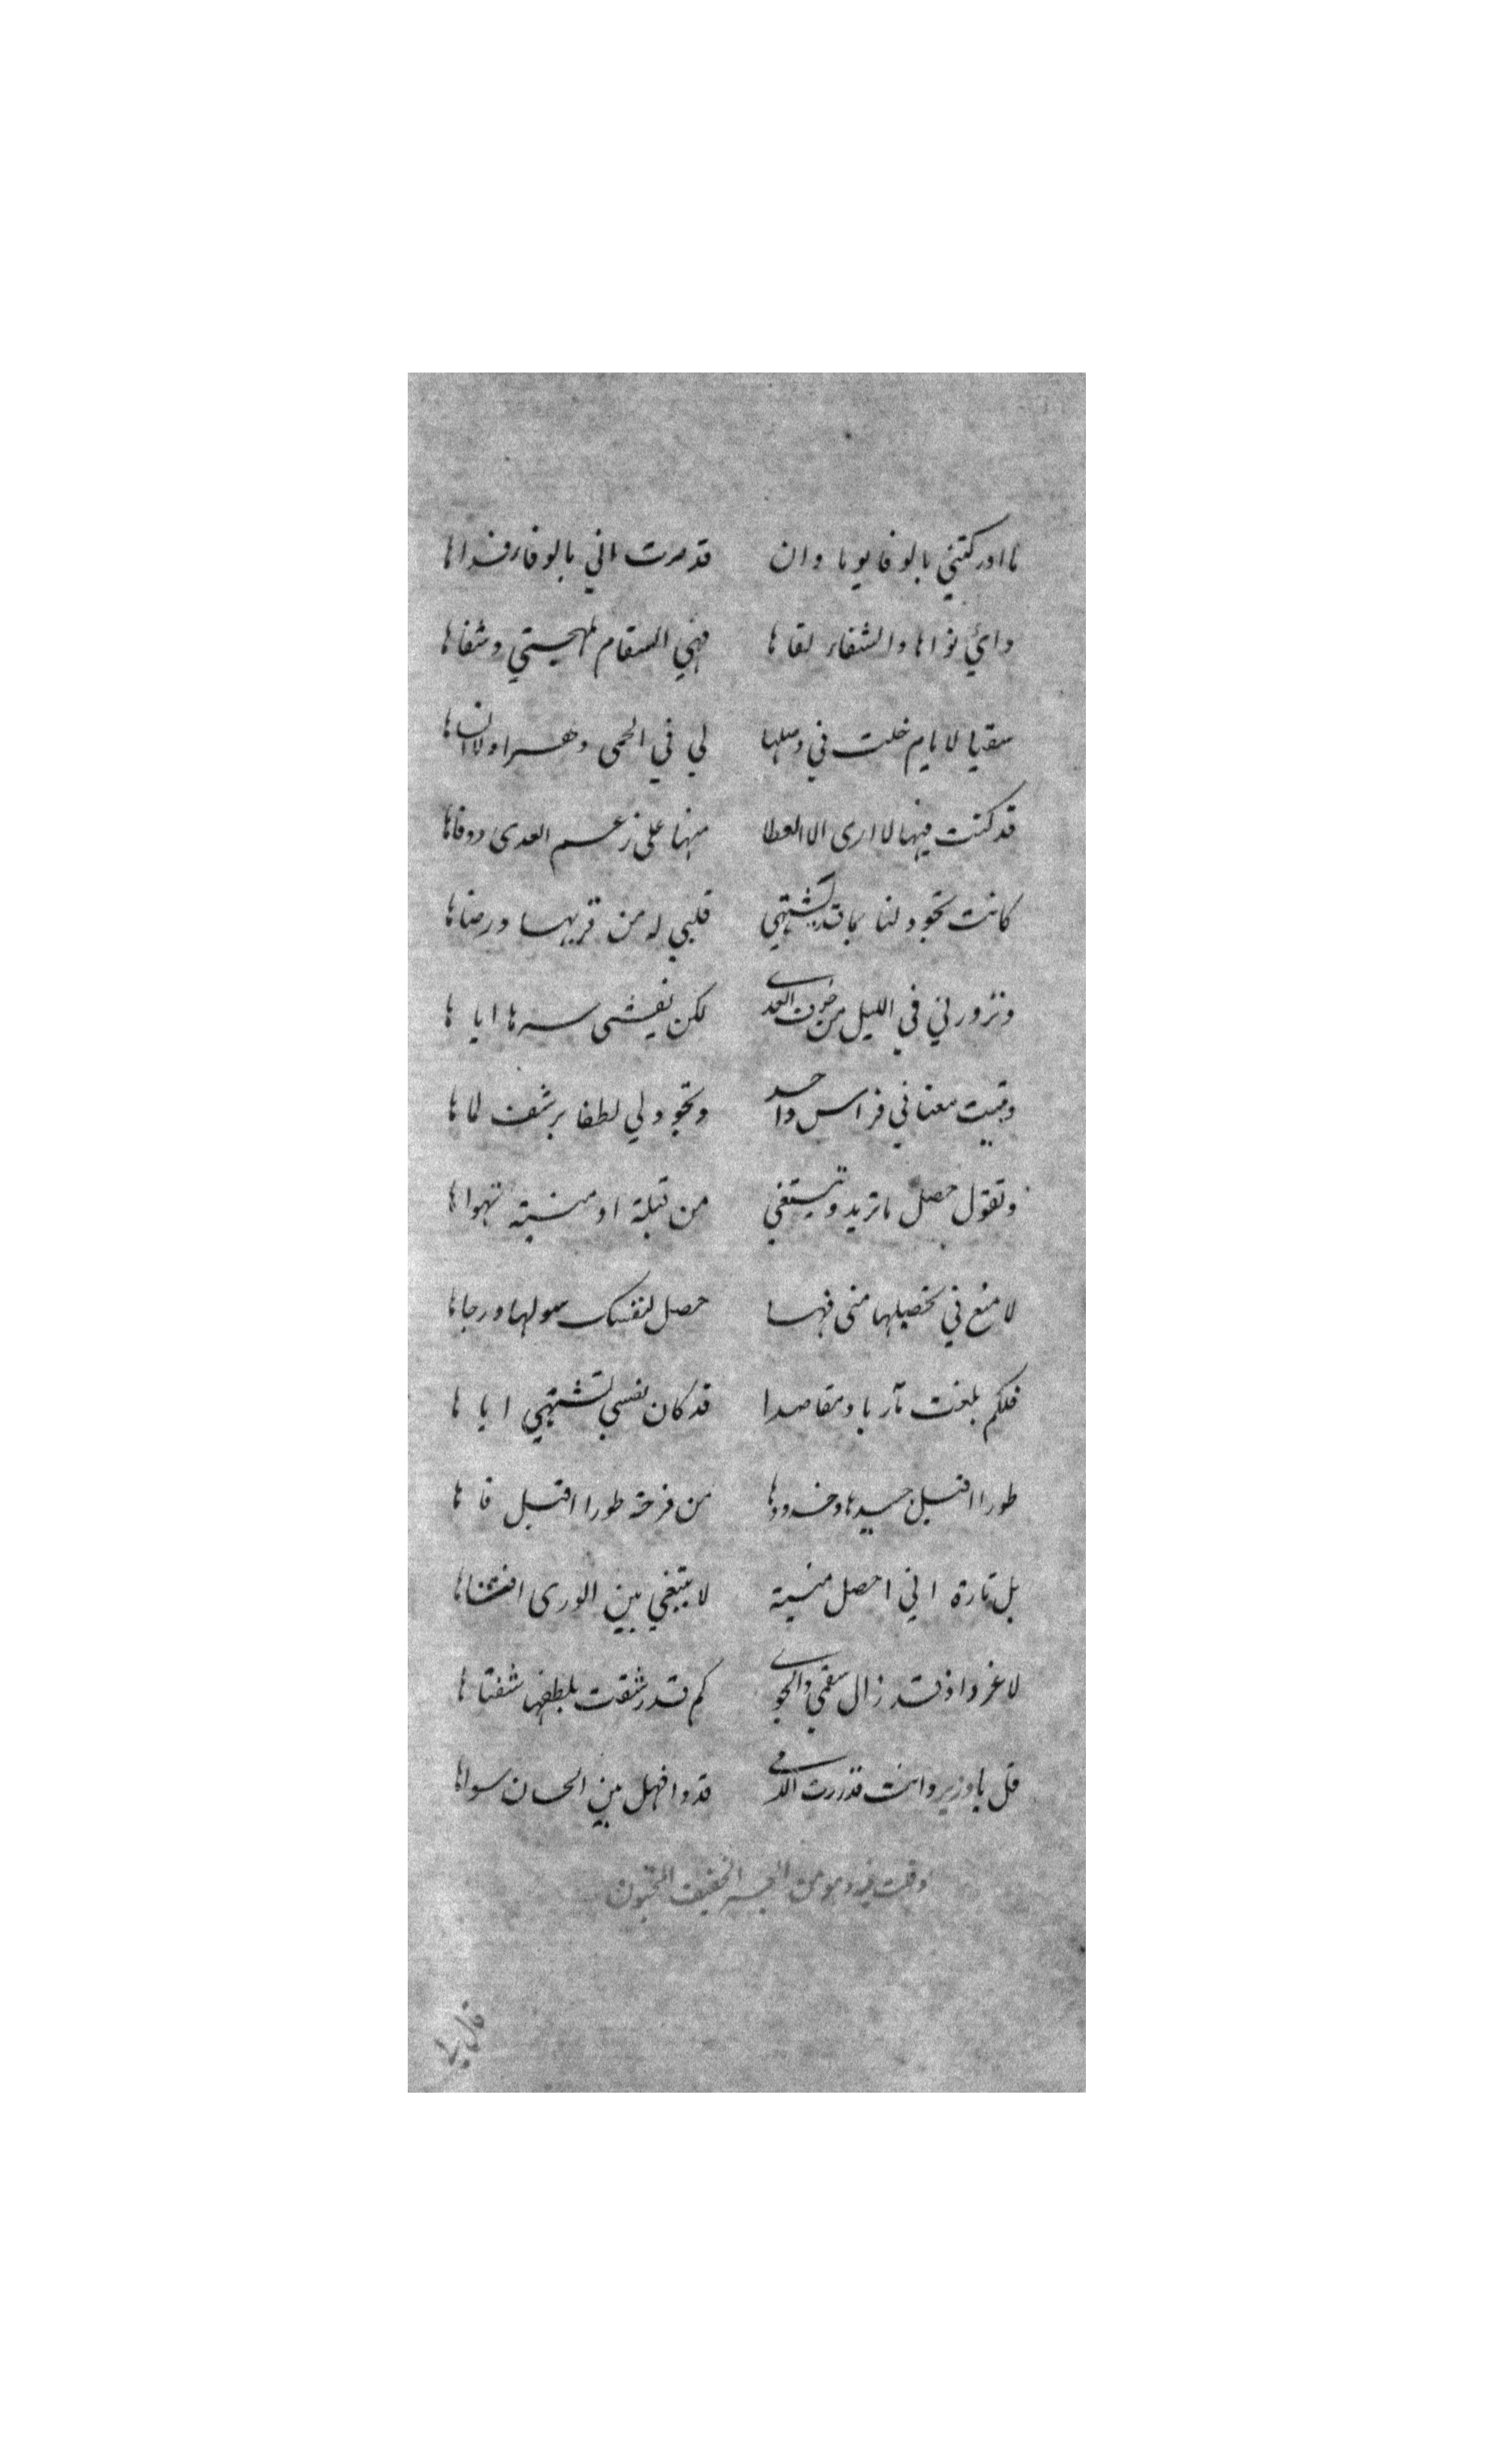 ما ادركتني بالوفا يوما وان قد صرت اني بالوفا رفداها
دائي نواها والشفاء لقاها فهي السقام لمهجتي وشفاها
سقيا لايام خلت في وصلها لي في الحمى دهرا ولا انساها
قد كنت فيها لا ارى الا العطا منها على زعم العدى ووفاها
كانت تجود لنا بما قد يشتهي قلبي له من قربها ورضاها
وتزورني في الليل من خوف العدى لكن يفشى سرها اياها
وتبيت معنا في فراس واحد وتجود لي لطفا برشف لماها
وتقول حصل ما تريد وتبتغي من قبلة او منية تهواها
لا منع في تحصيلها مني فها حصل لنفسك سولها ورجاها
فلكم بلغت مآربا ومقاصدا قد كان نفسي تشتهي اياها
طورا اقبل جيدها وخدودها من فرحة طورا اقبل فاها
بل تارة اني احصل منية لا تبتغي بين الورى افشاها
لا غرو اذ قد زال سقمي والجوى كم قد شفت بلطفها شفتاها
قل يا وزير وانت قد زرت الدمى قدوا فهل بين الحسان سواها
وقلت فيه وهو من البحر الخفيف المخبون
قل يا